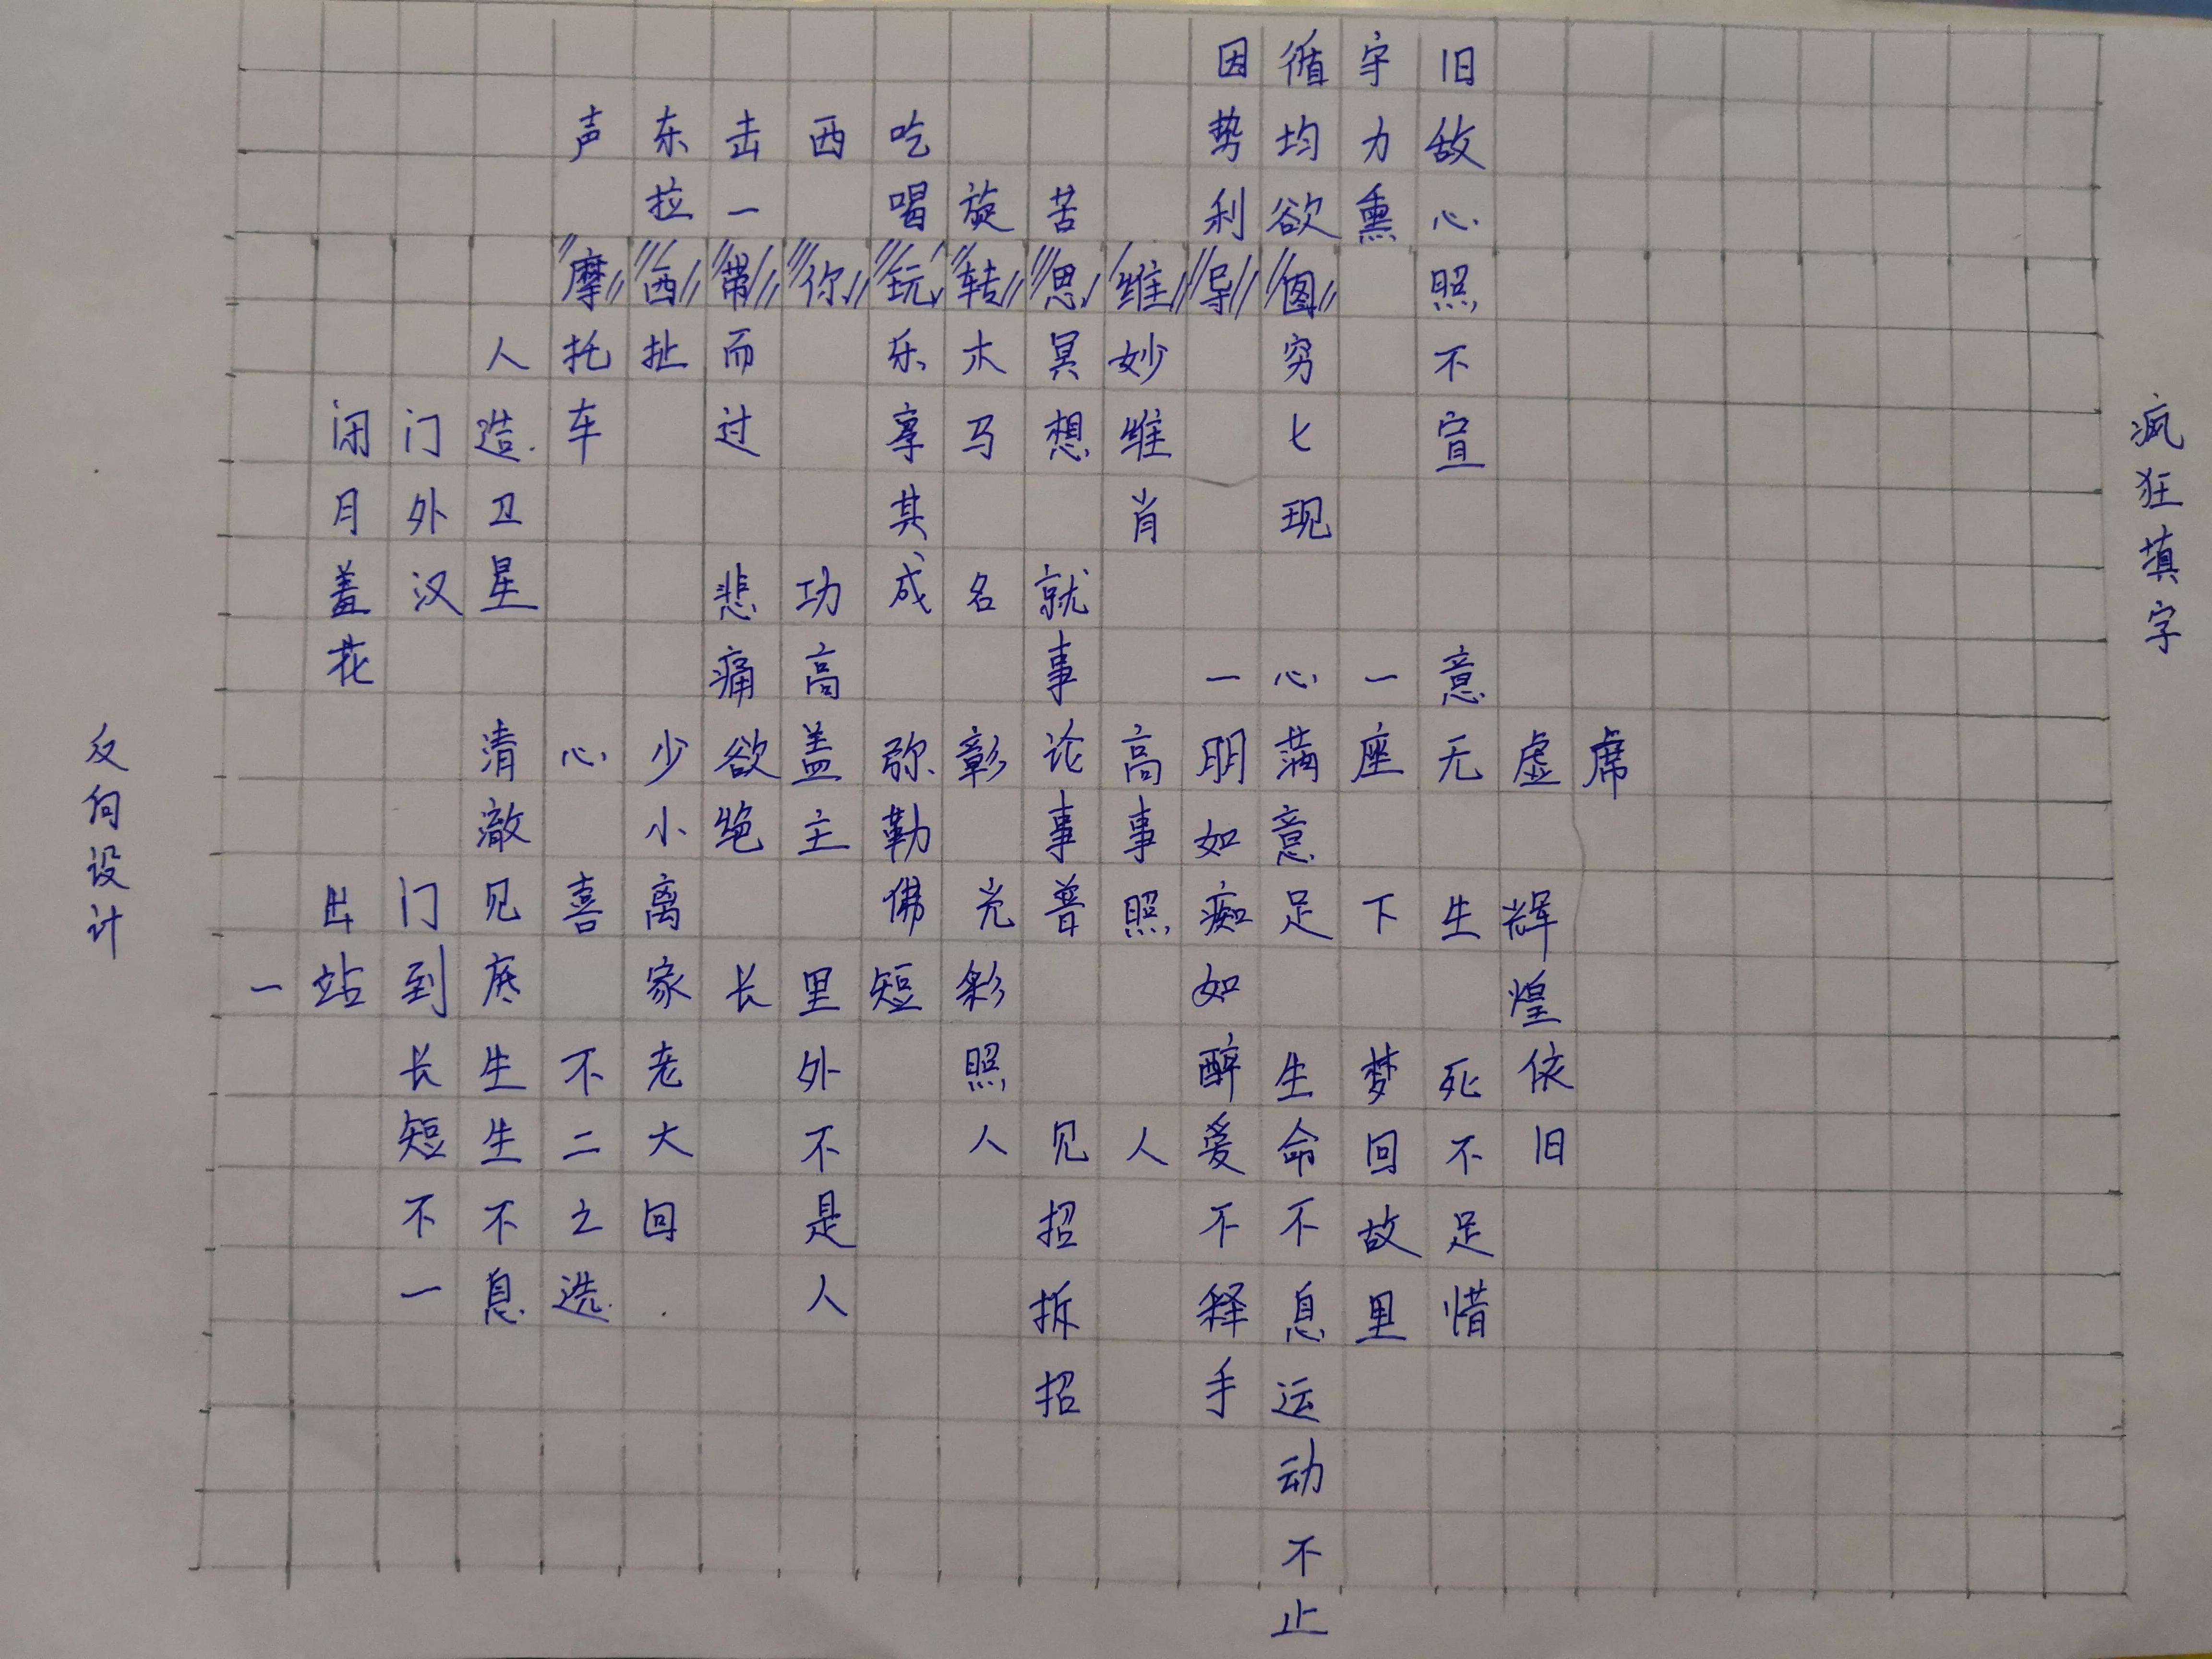 因循守旧
声东击西吃 势均力敌
拉一 喝旋苦 利欲熏心
摩西带你玩转思维导图 照
人托扯而 乐木冥妙 穷 不
闭门造车 过 享马想维 匕 宣
月外卫 其 肖 现
羞汉星 悲功成名就
花 痛高 事 一心一意
清心少欲盖弥彰论高明满座无虚席
澈 小绝主勒 事事如意
出门见喜离 佛光普照痴足下生辉
一站到底 家长里短彩 如 煌
长生不老 外 照 醉生梦死依
短生二大 不 人见人爱命回不旧
不不之回 是 招 不不故足
一息选 人 拆 释息里惜
招 手运
动
不
止
疯狂填字
反向设计